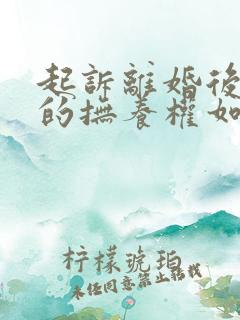 起訴離婚後
的撫養權如
柠檬琥珀
未经同意禁止转载